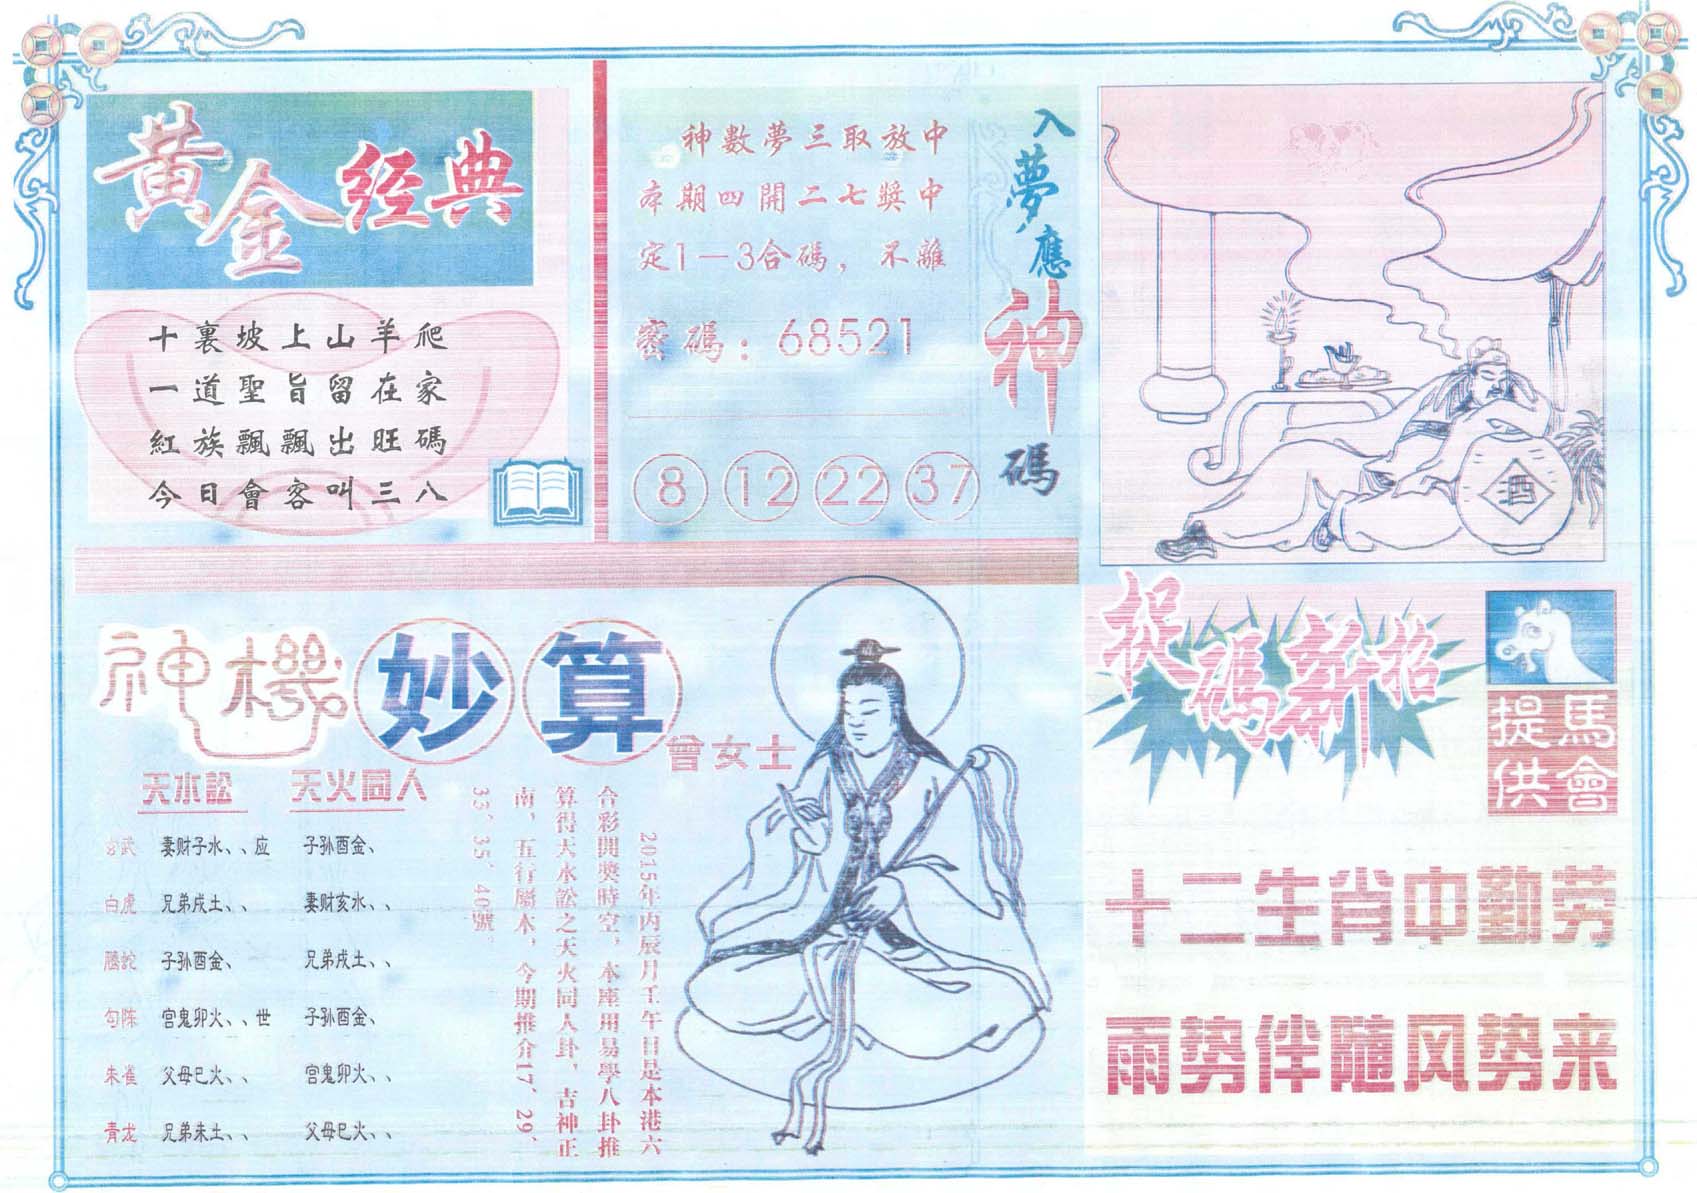 黄金经典
十裏坡上山羊爬
一道聖旨留在家
紅族飄飄出旺碼
今日會客叫三八
神數夢三取放中
本期四開二七獎中
定1—3合碼，不離
密碼：68521
8 12 22 37
入夢應神碼
酒
神機妙算
曾女士
天水訟 天火同人
玄武 妻财子水、、应 子孙酉金、
白虎 兄弟戌土、、 妻财亥水、、
腾蛇 子孙酉金、 兄弟戌土、、
勾陈 官鬼卯火、、世 子孙酉金、
朱雀 父母巳火、、 官鬼卯火、、
青龙 兄弟未土、、 父母巳火、、
2015年丙辰月壬午日是本港六
合彩開獎時空，本座用易學八卦推
算得天水訟之天火同人卦，吉神正
南，五行屬木，今期推介17、29、
33、35、40號。
捉碼新招
馬會提供
十二生肖中勤劳
雨势伴随风势来